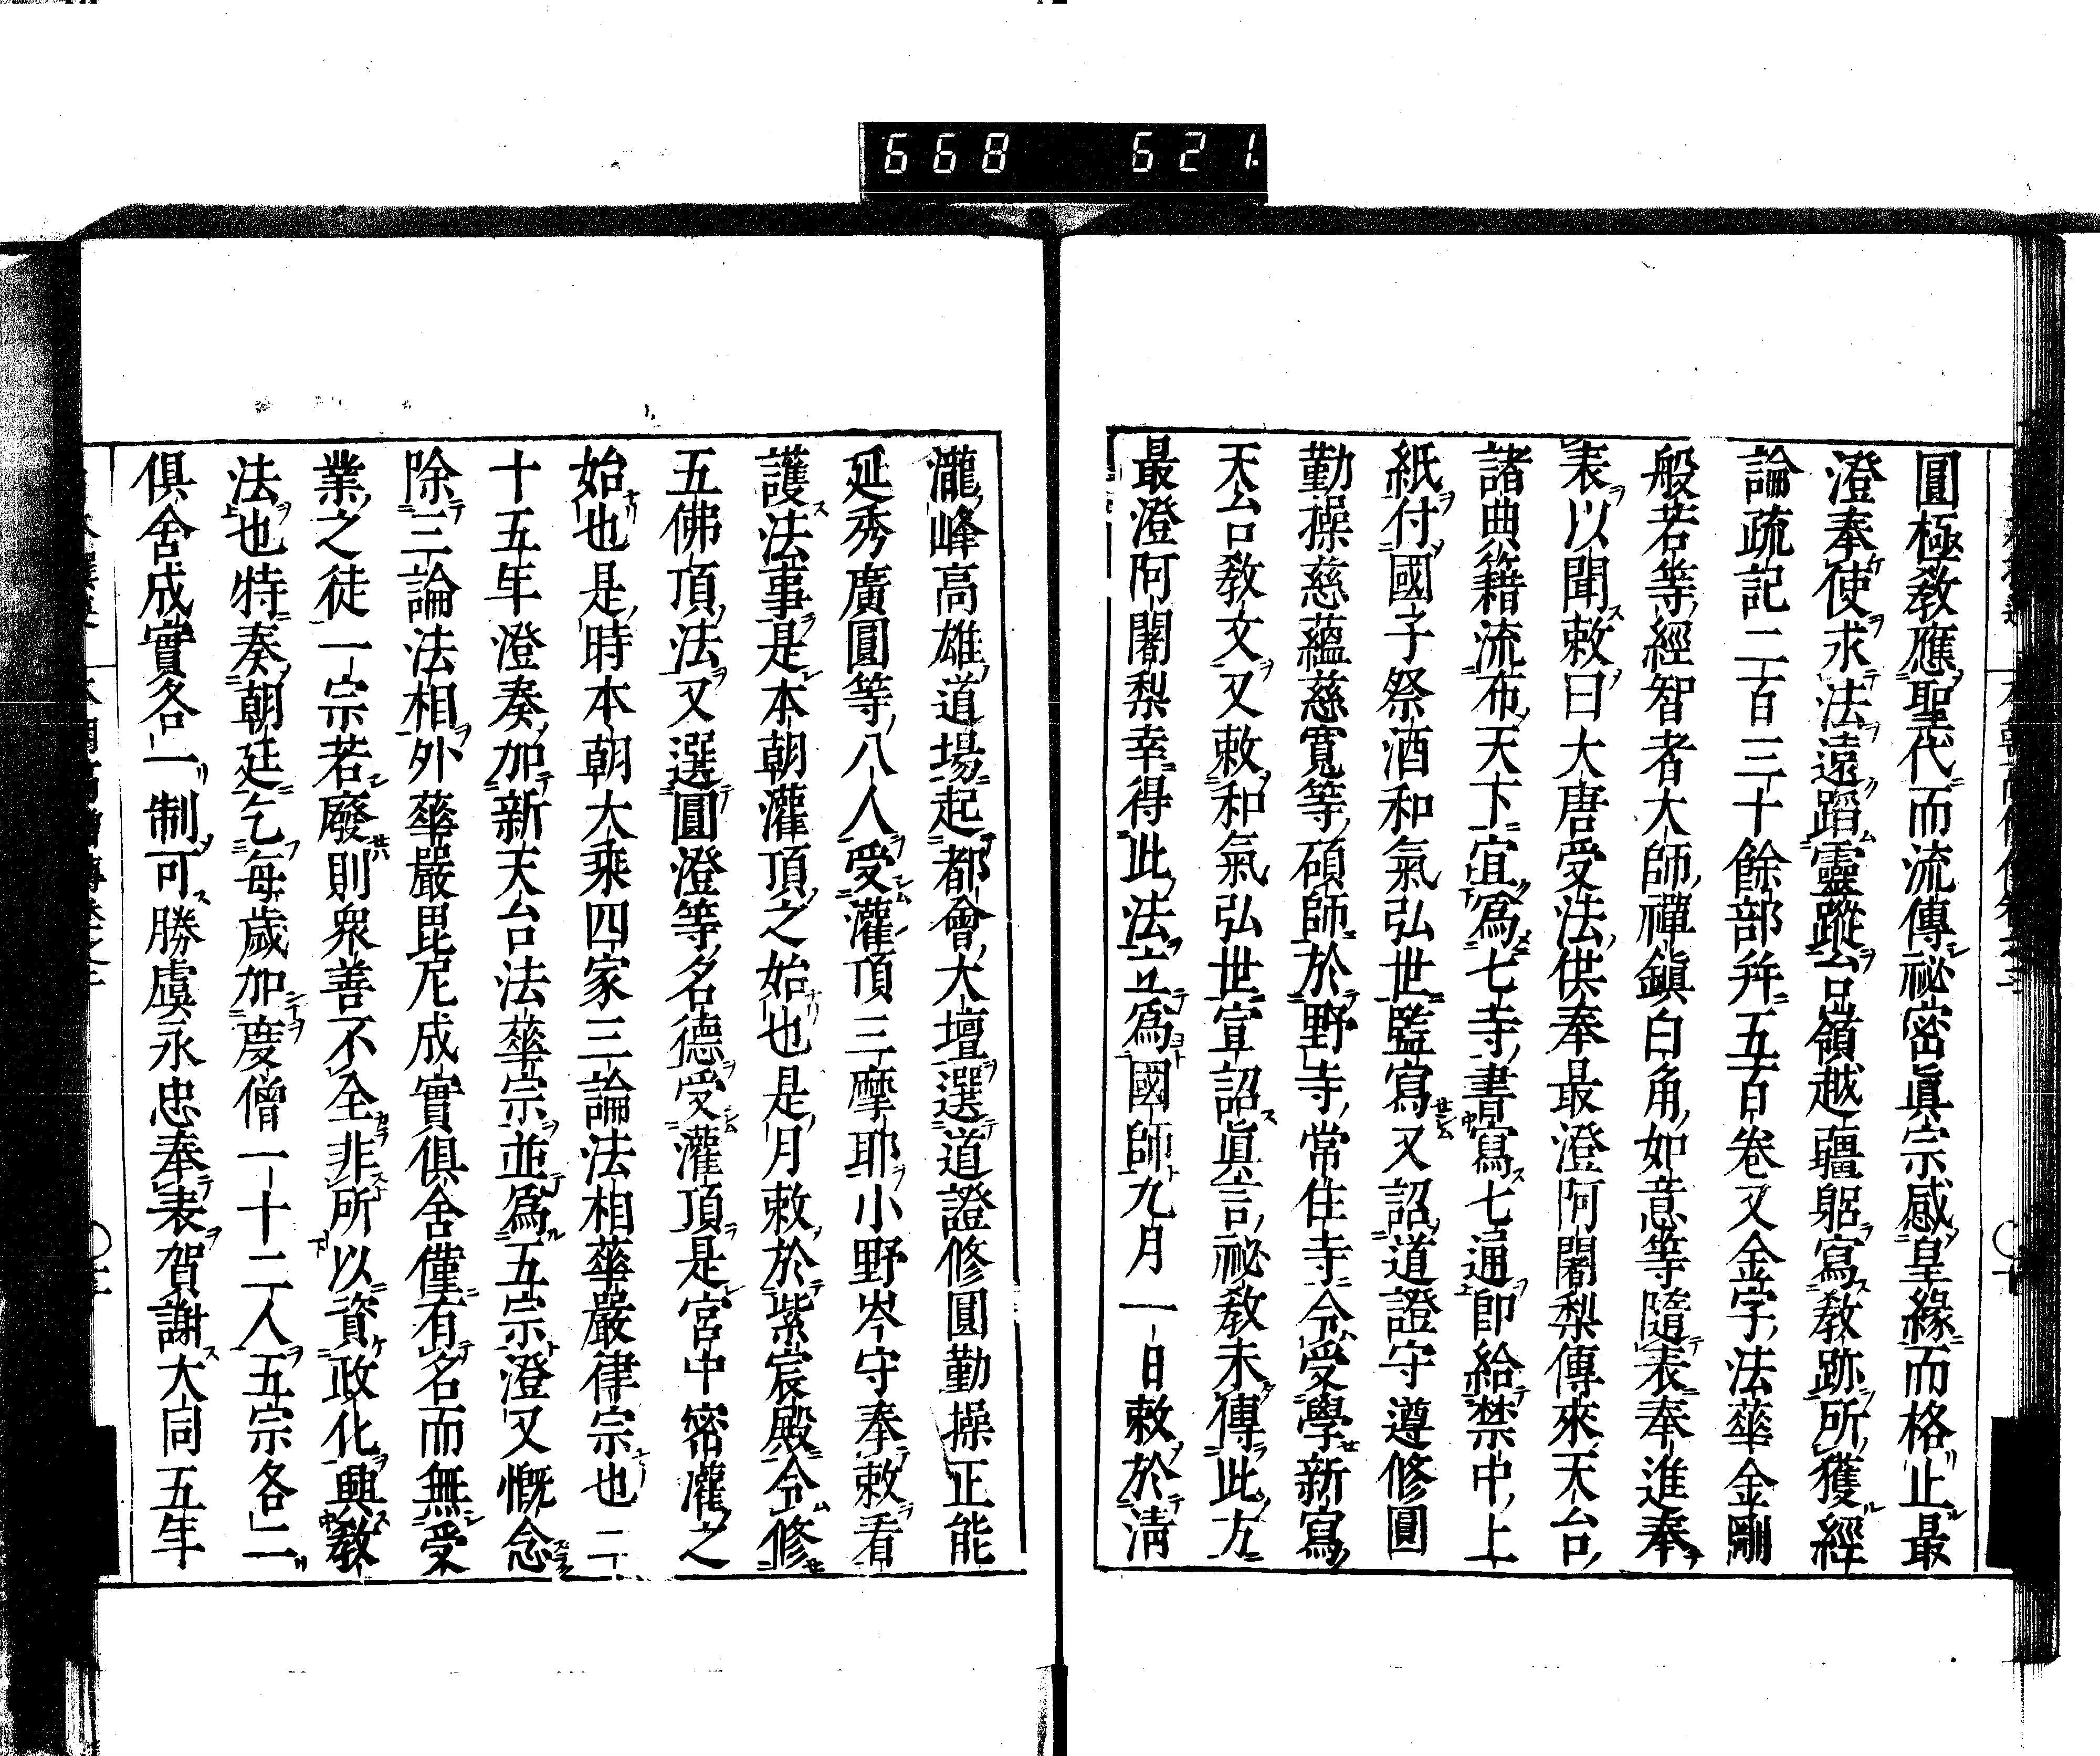 668 621.
圓極敎應聖代而流傳祕密眞宗感皇緣而格止最
澄奉使求法遠蹈靈蹤台嶺越疆躬寫敎跡所獲經
論疏記二百三十餘部幷五百卷又金字法華金剛
般若等經智者大師禪鎭白角如意等隨表奉進奉
表以聞敕曰大唐受法供奉最澄阿闍梨傳來天台
諸典籍流布天下宜爲七寺書寫七通卽給禁中上
紙付國子祭酒和氣弘世監寫又詔道證守遵修圓
勤操慈蘊慈寬等碩師於野寺常住寺令受學新寫
天台敎文又敕和氣弘世宣詔眞言祕敎未傳此方
最澄阿闍梨幸得此法立爲國師九月一日敕於淸
瀧峰高雄道場起都會大壇選道證修圓勤操正能
延秀廣圓等八人受灌頂三摩耶小野岑守奉敕看
護法事是本朝灌頂之始也是月敕於紫宸殿令修
五佛頂法又選圓澄等名德受灌頂是宮中密灌之
始也是時本朝大乘四家三論法相華嚴律宗也二
十五年澄奏加新天台法華宗並爲五宗澄又慨念
除三論法相外華嚴毘尼成實俱舍僅有名而無受
業之徒一宗若廢則衆善不全非所以資政化興敎
法也特奏朝廷乞每歲加度僧一十二人五宗各二
俱舍成實各一制可勝虞永忠奉表賀謝大同五年